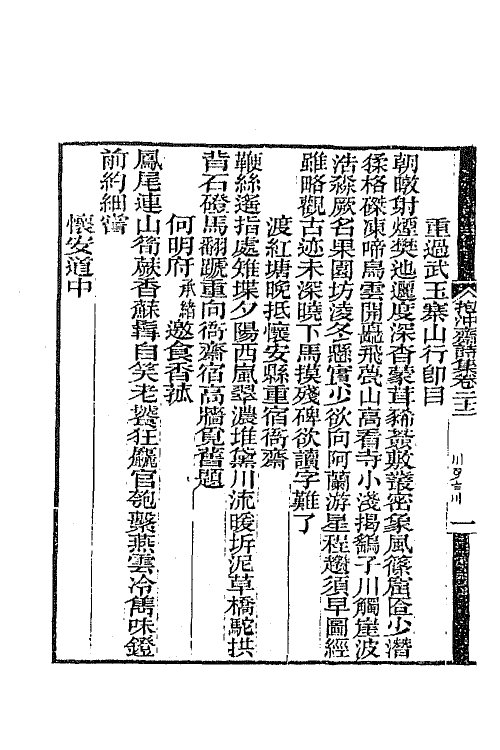 重過武玉寨山行卽目
朝暾射煙樊迆邐度深杳蒙茸豨薟敷叢密象風篠窟奩少潛
猱格磔凍啼鳥雲開臨飛甍山高看寺小淺揭鷂子川觸崖波
浩淼厥名果園坊凌冬懸實少欲向阿蘭游星程趲須早圖經
雖略觀古迹未深曉下馬摸殘碑欲讀字難了
渡紅塘晚抵懷安縣重宿衙齋
鞭絲遙指處雉堞夕陽西嵐翠濃堆黛川流暖坼泥草橋駝拱
背石磴馬翻蹏重向衙齋宿高牆覓舊題
何明府承緒邀食香菰
鳳尾連山筍蕨香蘇鞾自笑老饕狂麤官匏繫燕雲冷雋味鐙
前約細嘗
懷安道中
抱沖齋詩集卷二十二
一